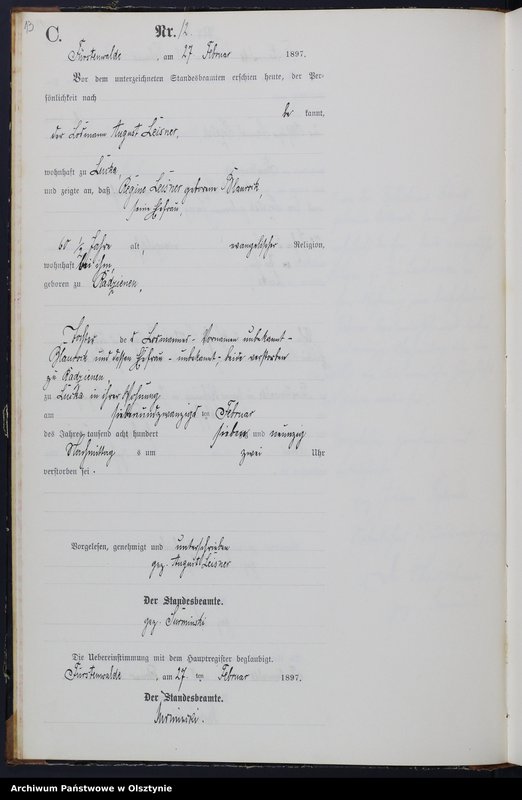 13
C.
Nr. 12.
Fürstenwalde, am 27 Februar 1897.
Vor dem unterzeichneten Standesbeamten erschien heute, der Per-
sönlichkeit nach
be kannt,
der Losmann August Leisner,
wohnhaft zu Lucka,
und zeigte an, daß Regine Leisner geborene
seine Ehefrau,
60 1/2 Jahre alt, evangelischer Religion,
wohnhaft bei ihm,
geboren zu Radzienen,
Tochter des Losmannes - Vornamen unbekannt -
und dessen Ehefrau - unbekannt -, beide verstorben
zu Radzienen,
zu Lucka in ihrer Wohnung
am siebenundzwanzigsten Februar
des Jahres tausend acht hundert sieben und neunzig
Nachmittags um zwei Uhr
verstorben sei.
Vorgelesen, genehmigt und unterschrieben
gez. August Leisner
Der Standesbeamte.
gez.
Die Uebereinstimmung mit dem Hauptregister beglaubigt.
Fürstenwalde, am 27 ten Februar 1897.
Der Standesbeamte.
Archiwum Państwowe w Olsztynie